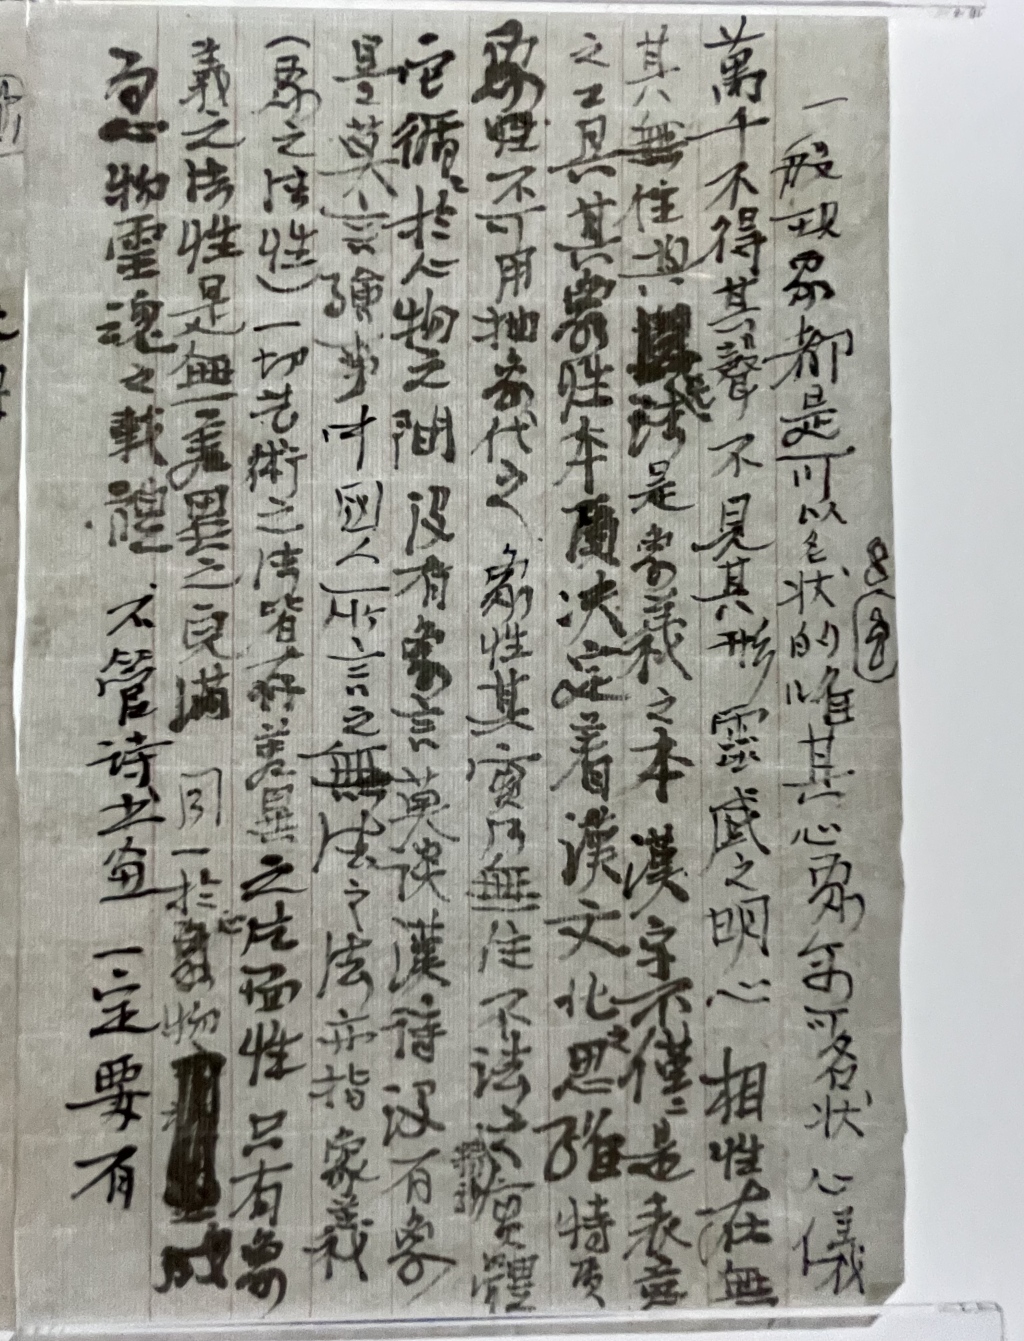 一般現象都是可以名状的唯其心象不可名状 心儀
萬千不得其聲 不見其形 靈感之明心 相性在無
其無住 法是象義之本 漢字不僅是表意
之工具其象性本質决定着漢文化之思維特質
象性不可用抽象代之 象性其實乃無住不法之實體
它循於心物之间 没有象言莫談漢詩 没有象
是莫言 中國人所言之無法之法亦指象義
(象之法性) 一切芸術之法皆存差異之片面性 只有象
義之法性是無差異之完满 同一於心物 成
為心物靈魂之載體 不管詩书画 一定要有